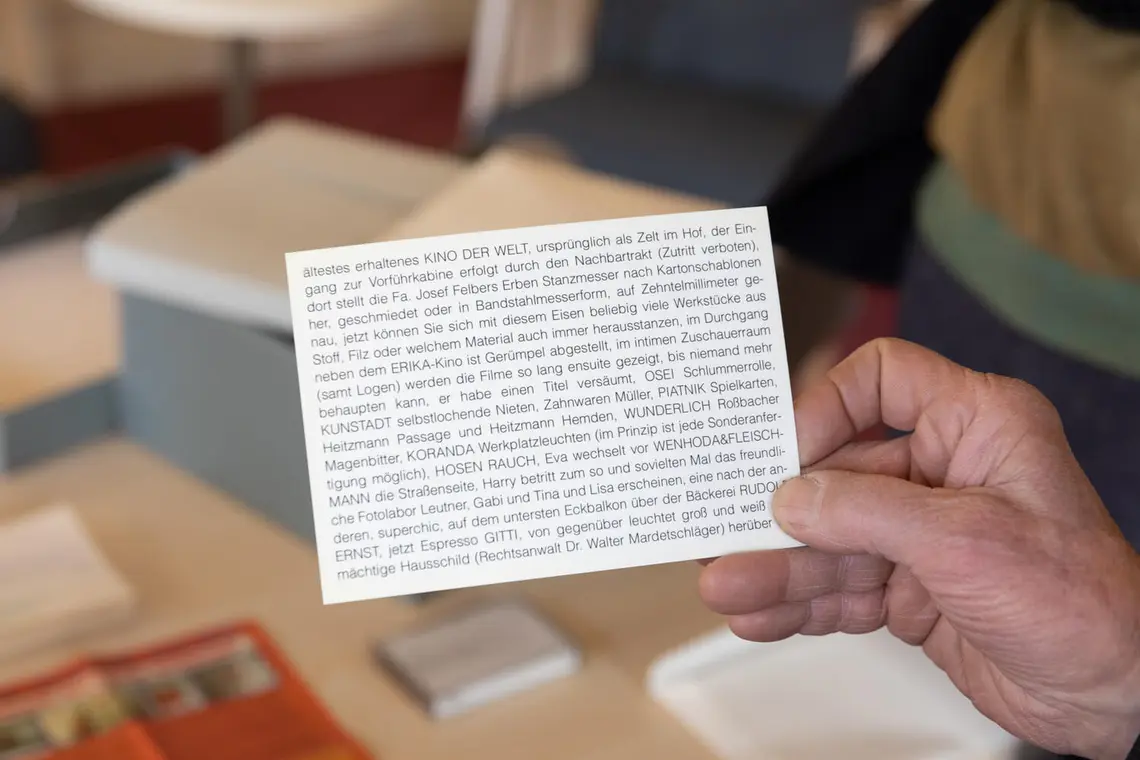 ältestes erhaltenes KINO DER WELT, ursprünglich als Zelt im Hof, der Ein-
gang zur Vorführkabine erfolgt durch den Nachbartrakt (Zutritt verboten),
dort stellt die Fa. Josef Felbers Erben Stanzmesser nach Kartonschablonen
her, geschmiedet oder in Bandstahlmesserform, auf Zehntelmillimeter ge-
nau, jetzt können Sie sich mit diesem Eisen beliebig viele Werkstücke aus
Stoff, Filz oder welchem Material auch immer herausstanzen, im Durchgang
neben dem ERIKA-Kino ist Gerümpel abgestellt, im intimen Zuschauerraum
(samt Logen) werden die Filme so lang ensuite gezeigt, bis niemand mehr
behaupten kann, er habe einen Titel versäumt, OSEI Schlummerrolle,
KUNSTADT selbstlochende Nieten, Zahnwaren Müller, PIATNIK Spielkarten,
Heitzmann Passage und Heitzmann Hemden, WUNDERLICH Roßbacher
Magenbitter, KORANDA Werkplatzleuchten (im Prinzip ist jede Sonderanfer-
tigung möglich), HOSEN RAUCH, Eva wechselt vor WENHODA&FLEISCH-
MANN die Straßenseite, Harry betritt zum so und sovielten Mal das freundli-
che Fotolabor Leutner, Gabi und Tina und Lisa erscheinen, eine nach der an-
deren, superchic, auf dem untersten Eckbalkon über der Bäckerei RUDOL
ERNST, jetzt Espresso GITTI, von gegenüber leuchtet groß und weiß
mächtige Hausschild (Rechtsanwalt Dr. Walter Mardetschläger) herüber